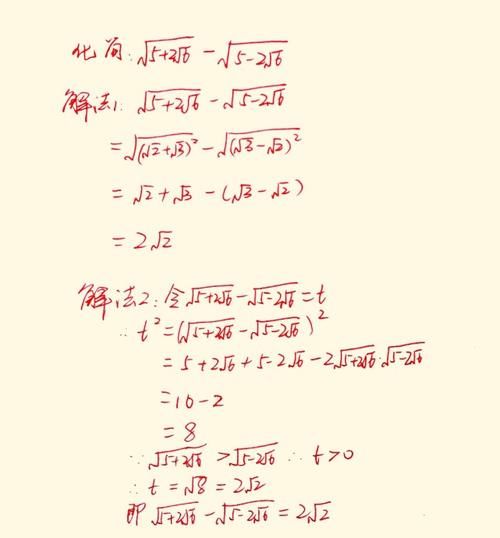 化简:√(5+2√6) - √(5-2√6)
解法1: √(5+2√6) - √(5-2√6)
=√((√2+√3)²) - √((√3-√2)²)
= √2+√3 - (√3-√2)
= 2√2
解法2:令√(5+2√6)-√(5-2√6)=t
∴ t²=(√(5+2√6)-√(5-2√6))²
= 5+2√6+5-2√6-2√(5+2√6)·√(5-2√6)
=10-2
= 8
∵ √(5+2√6)>√(5-2√6) ∴ t>0
∴ t=√8=2√2
即√(5+2√6)-√(5-2√6)=2√2